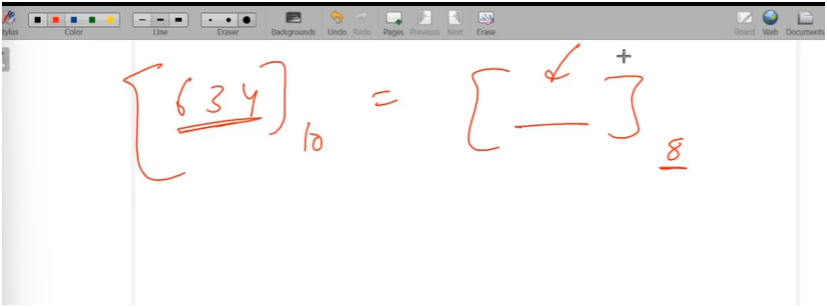 Stylus Color Line Eraser Backgrounds Undo Redo Pages Previous Next Erase Board Web Documents
[634]10 = [ __ ]8